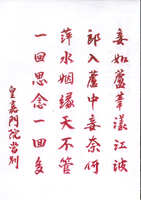 妾如蘆葦漾江波
郎入蘆中妾奈何
萍水姻緣天不管
一回思念一回多
皇嘉門院別当